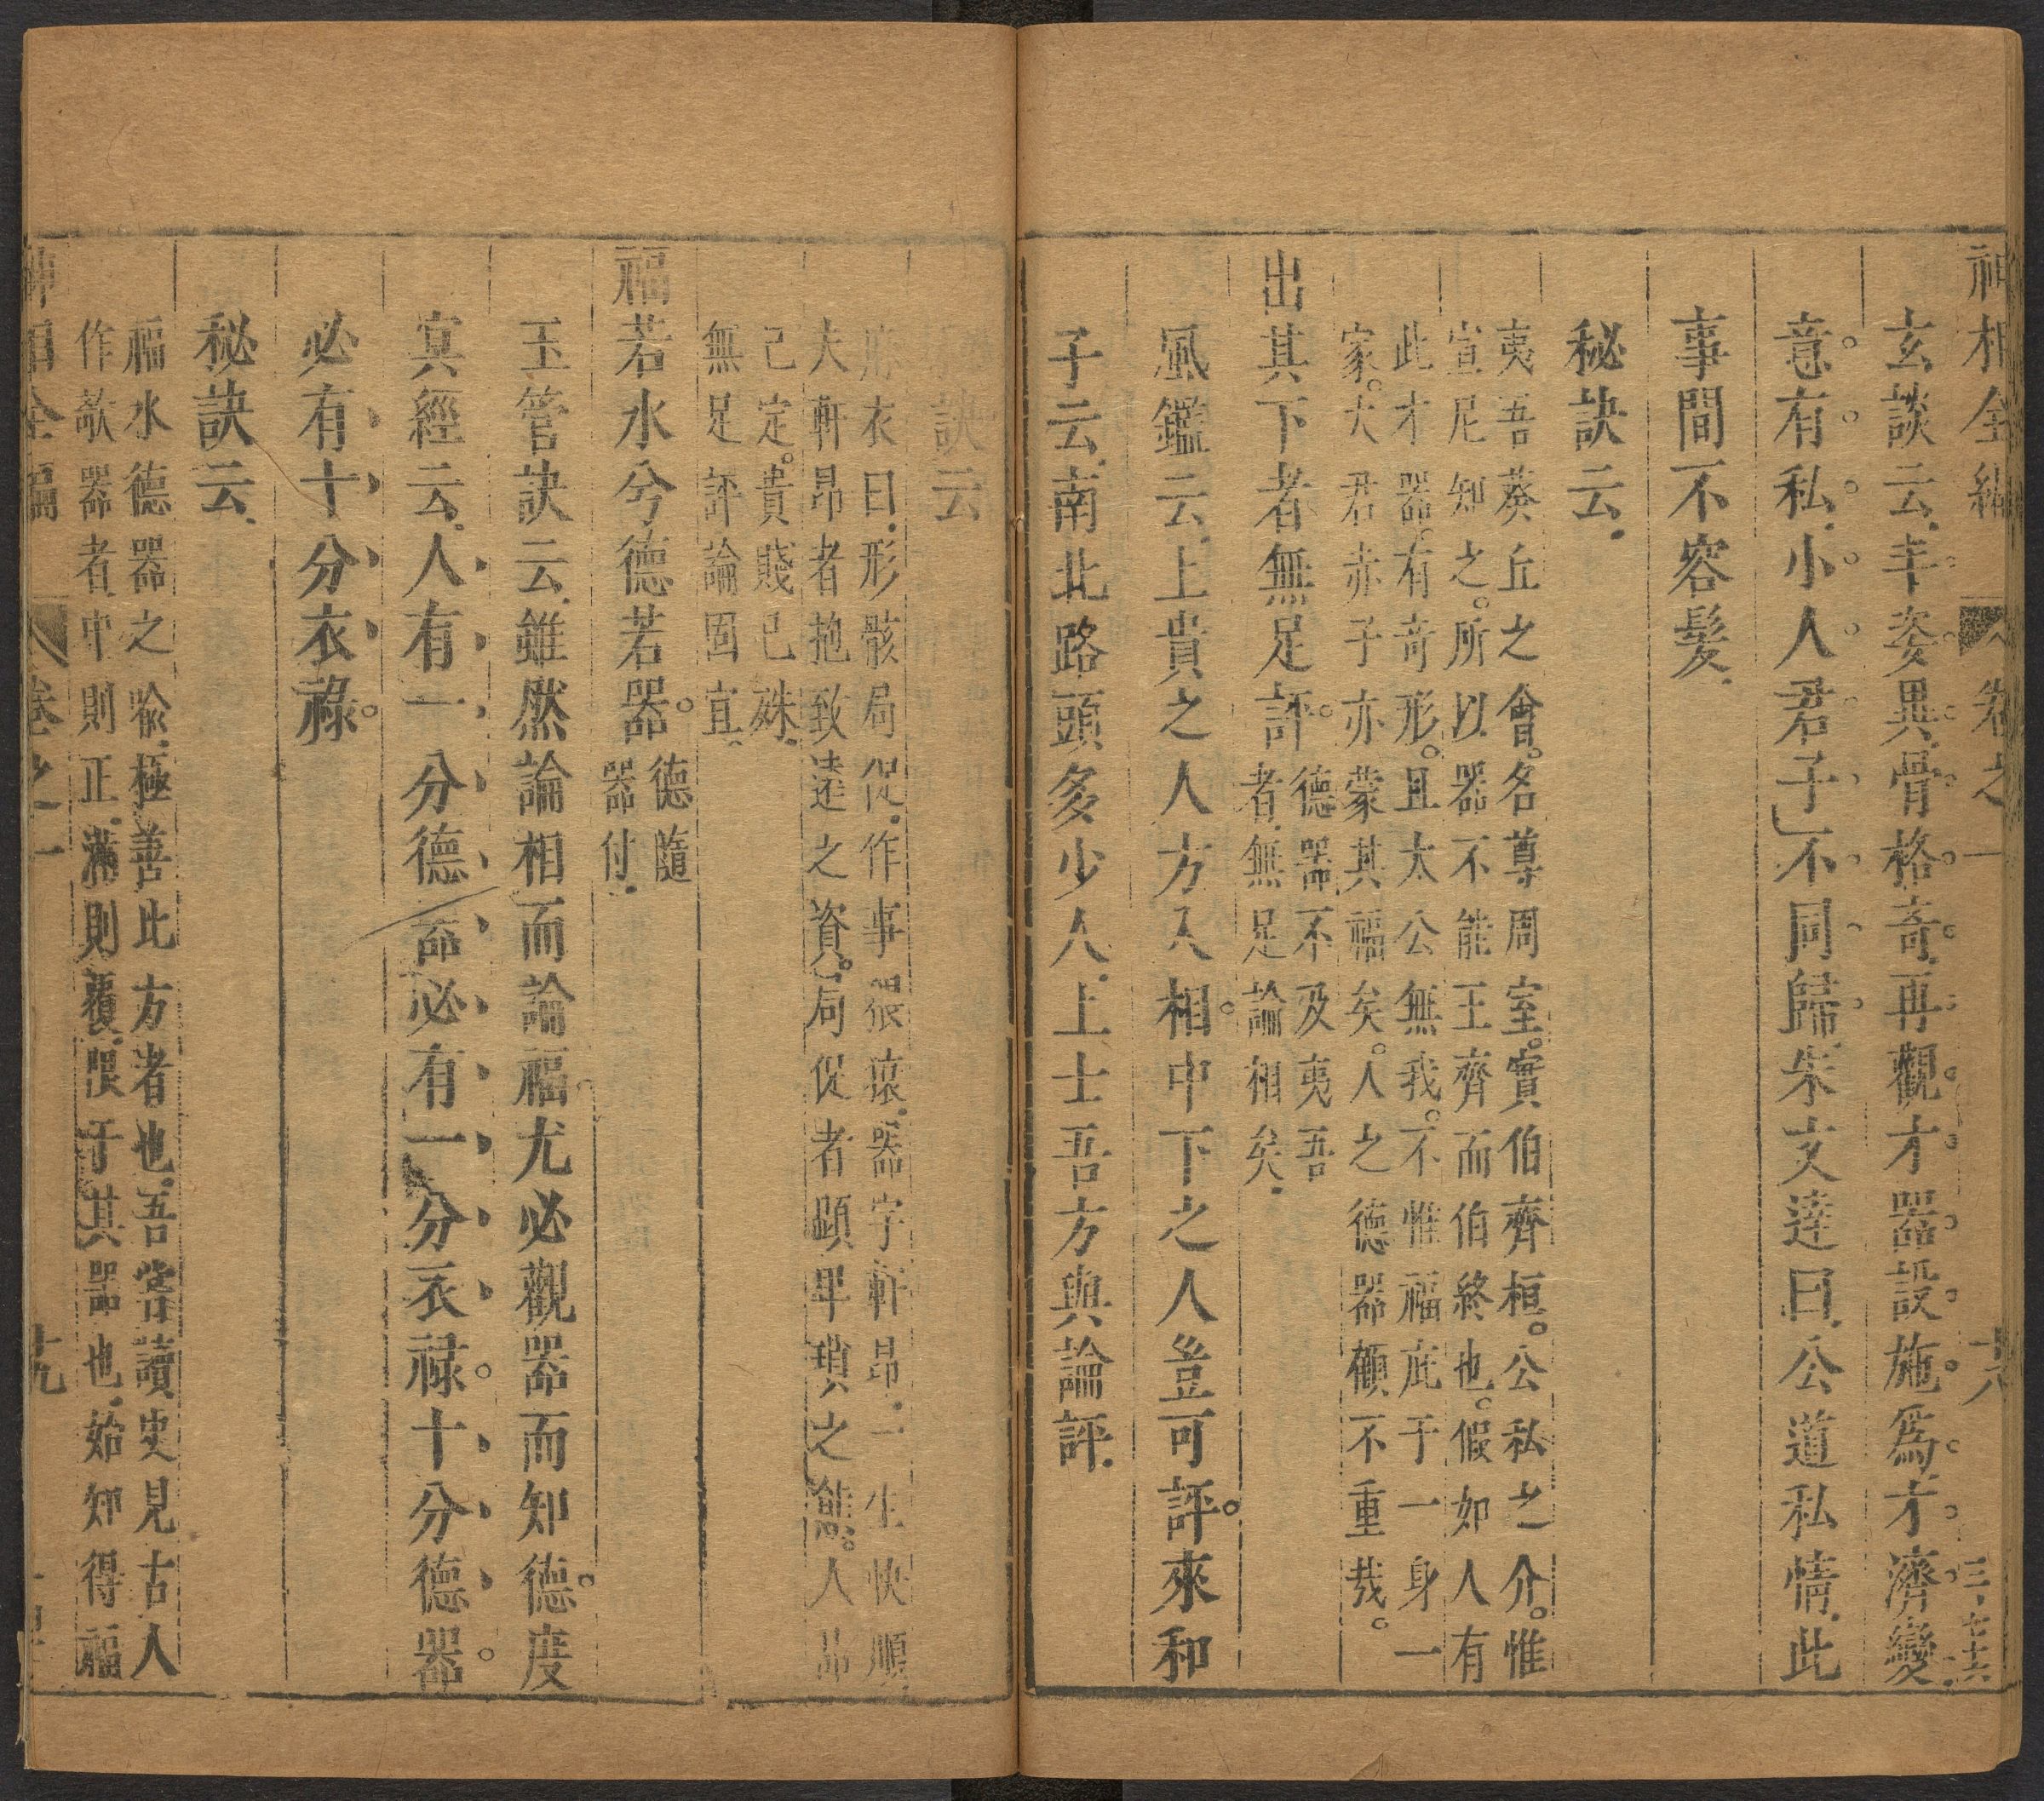 神相全編 卷之一 十八 三七十六
玄談云丰姿異骨格奇再觀才器設施爲才濟變
意有私小人君子不同歸朱文達曰公道私情此
事間不容髮
秘訣云
夷吾葵丘之會名尊周室實伯齊桓公私之介惟
宣尼知之所以器不能王齊而伯終也假如人有
此才器有奇形且太公無我不惟福庇于一身一
家大君赤子亦蒙其福矣人之德器顧不重哉
出其下者無足評
德器不及夷吾
者無足論相矣
風鑑云上貴之人方入相中下之人豈可評來和
子云南北路頭多少人上士吾方與論評
訣云
衣曰形骸局促作事猥㒟器宇軒昂一生快順
大軒昂者抱致遠之資局促者顕畢瑣之態人品
已定貴賤已殊
無足評論固宜
福若水兮德若器
德隨
器付
玉管訣云雖然論相而論福尤必觀器而知德度
㝠經云人有一分德器必有一分衣禄十分德器
必有十分衣祿
秘訣云
福水德器之喻極善此方者也吾嘗讀史見古人
作欹器者中則正滿則覆㒟于其器也始知得福
神相全編 卷之一 十九